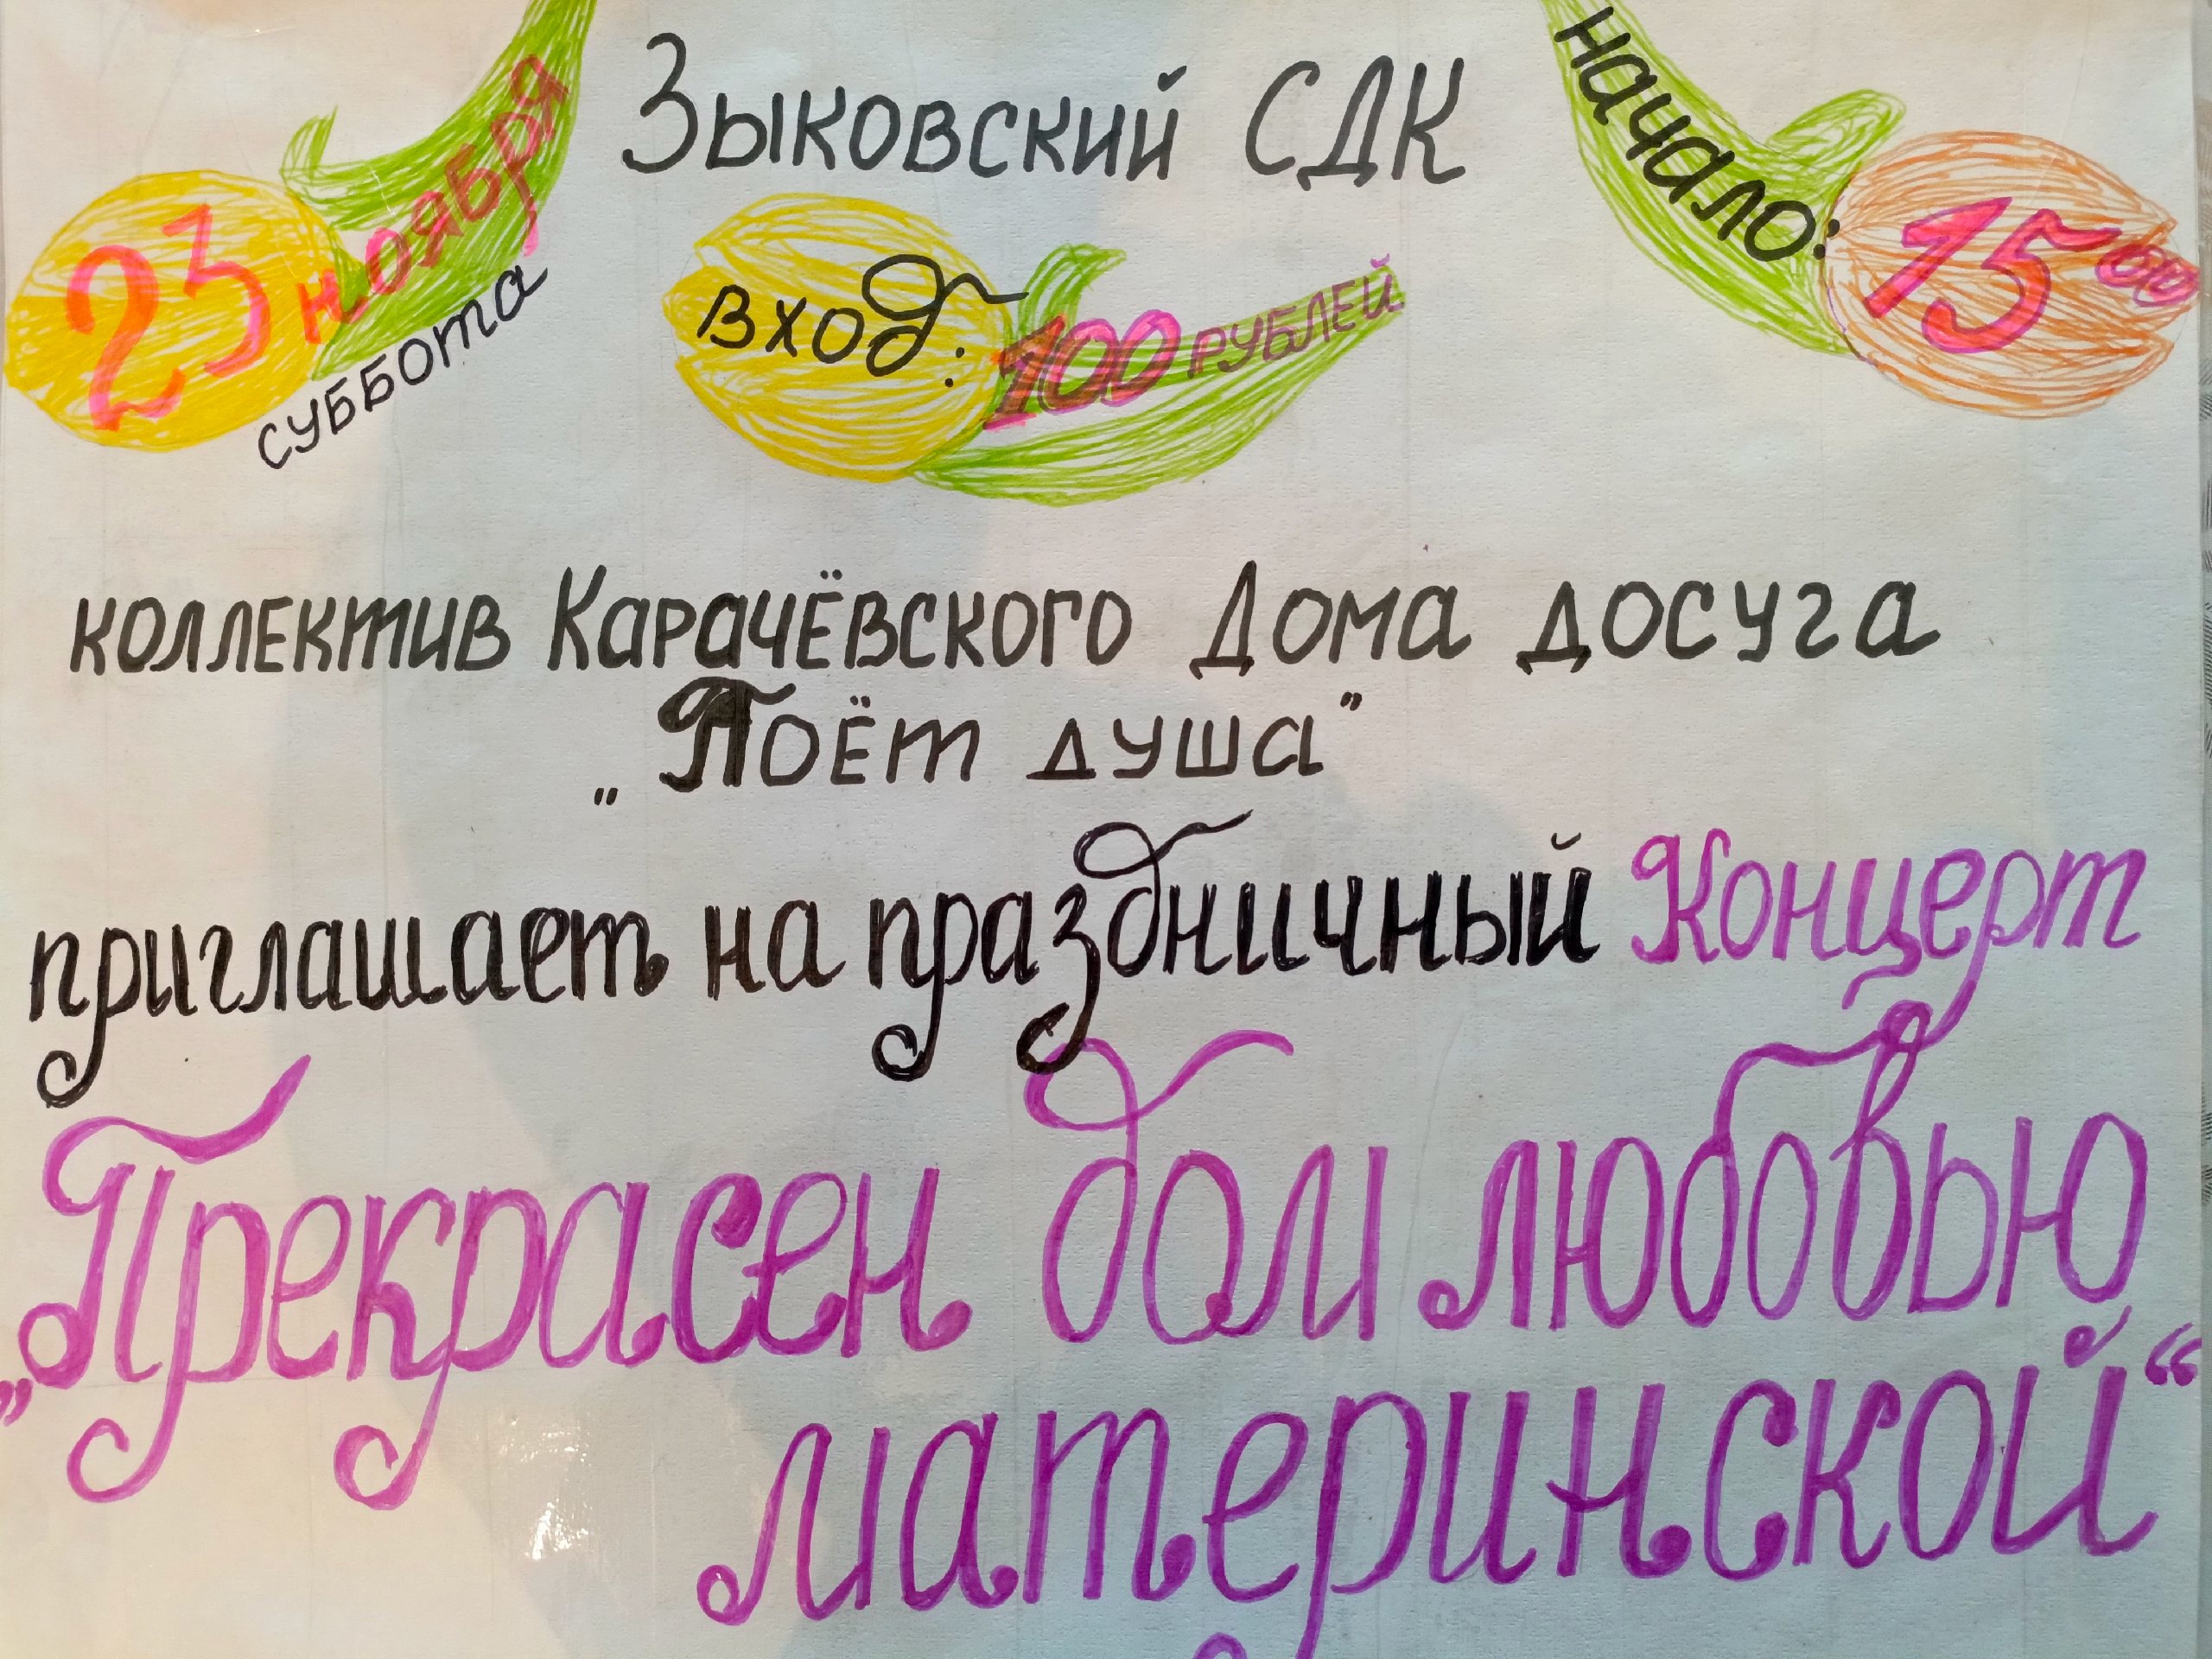 Зыковский СДК
23 ноября
суббота
Вход: 100 рублей
начало: 15 00
коллектив Карачёвского Дома досуга
„Поёт душа”
приглашает на праздничный Концерт
„Прекрасен дом любовью
материнской“